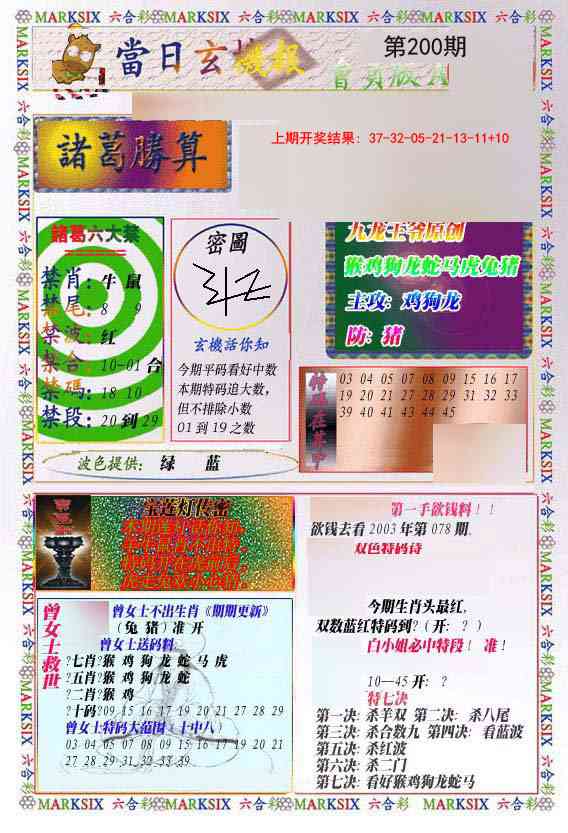 MARKSIX 六合彩 MARKSIX 六合彩 MARKSIX 六合彩 MARKSIX 六合彩
當日玄機報
第200期
諸葛勝算
上期开奖结果: 37-32-05-21-13-11+10
諸葛六大禁
禁肖: 牛 鼠
禁尾: 8 9
禁波: 红
禁合: 10-01 合
禁碼: 18 10
禁段: 20 到 29
密圖
玄機活你知
今期平码看好中数
本期特码追大数,
但不排除小数
01 到 19 之数
九龙王爷原创
猴鸡狗龙蛇马虎兔猪
主攻: 鸡狗龙
防: 猪
03 04 05 07 08 09 15 16 17
19 20 21 27 28 29 31 32 33
39 40 41 43 44 45
波色提供: 绿 蓝
宝莲灯传密
第一手欲钱料!!
欲钱去看 2003 年第 078 期.
双色特码诗
今期生肖头最红,
双数蓝红特码到? (开: ? )
白小姐必中特段! 准!
10—45 开: ?
特七决
第一决: 杀羊双 第二决: 杀八尾
第三决: 杀合数九 第四决: 看蓝波
第五决: 杀红波
第六决: 杀二门
第七决: 看好猴鸡狗龙蛇马
曾女士救世
曾女士不出生肖《期期更新》
(兔 猪) 准 开
曾女士送码料
?七肖?猴 鸡 狗 龙 蛇 马 虎
?五肖?猴 鸡 狗 龙 蛇
?二肖?猴 鸡
?十码?09 15 16 17 19 20 21 27 28 29
曾女士特码大范围 (十中八)
03 04 05 07 08 09 15 16 17 19 20 21
27 28 29 31 32 33 39
MARKSIX 六合彩 MARKSIX 六合彩 MARKSIX 六合彩 MARKSIX 六合彩